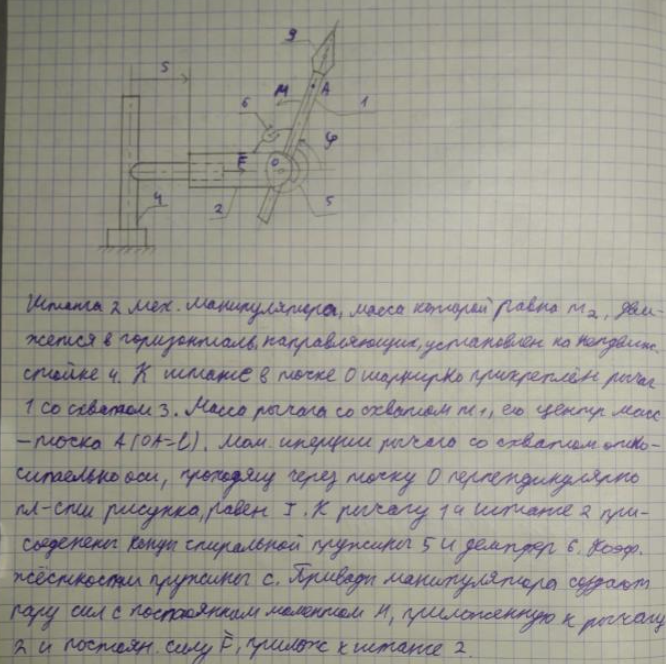 9
S
M
A
1
6
φ
F
O
4
2
5
Штанга 2 мех. манипулятора, масса которой равна m₂, дви-
жется в горизонтальн. направляющих, установлен на неподвиж.
стойке 4. К штанге в точке О шарнирно прикреплён рычаг
1 со схватом 3. Масса рычага со схватом m₁, его центр масс
– точка A (OA=l). Мом. инерции рычага со схватом отно-
сительно оси, проходящ через точку О перпендикулярно
пл-сти рисунка, равен I. К рычагу 1 и штанге 2 при-
соеденены концы спиральной пружины 5 и демпфер 6. Коэф.
жёсткости пружины c. Приводы манипулятора создают
пару сил с постоянным моментом М, приложенную к рычагу
2 и постоян. силу F̄, прилож к штанге 2